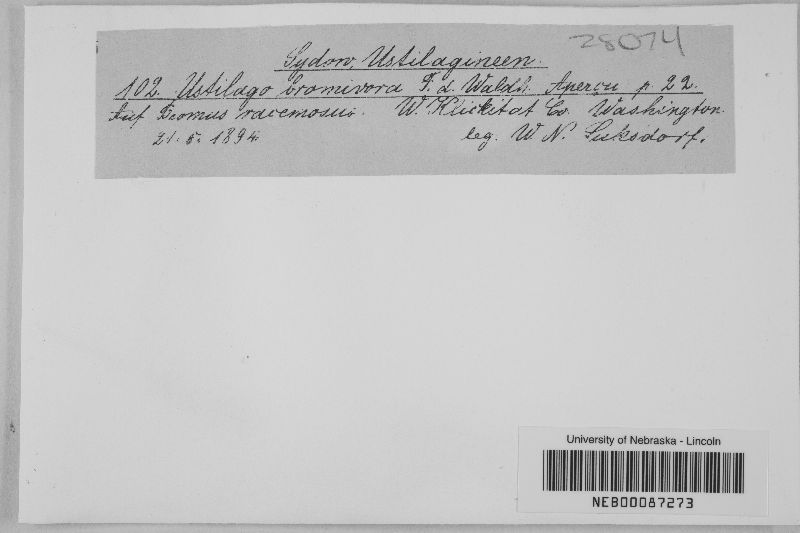 28074
Sydow, Ustilagineen.
102. Ustilago bromivora F. d. Waldh. Aperçu p. 22.
Auf Bromus racemosus. W. Klickitat Co. Washington.
21. 5. 1894. leg. W. N. Suksdorf.
University of Nebraska - Lincoln
NEB00087273